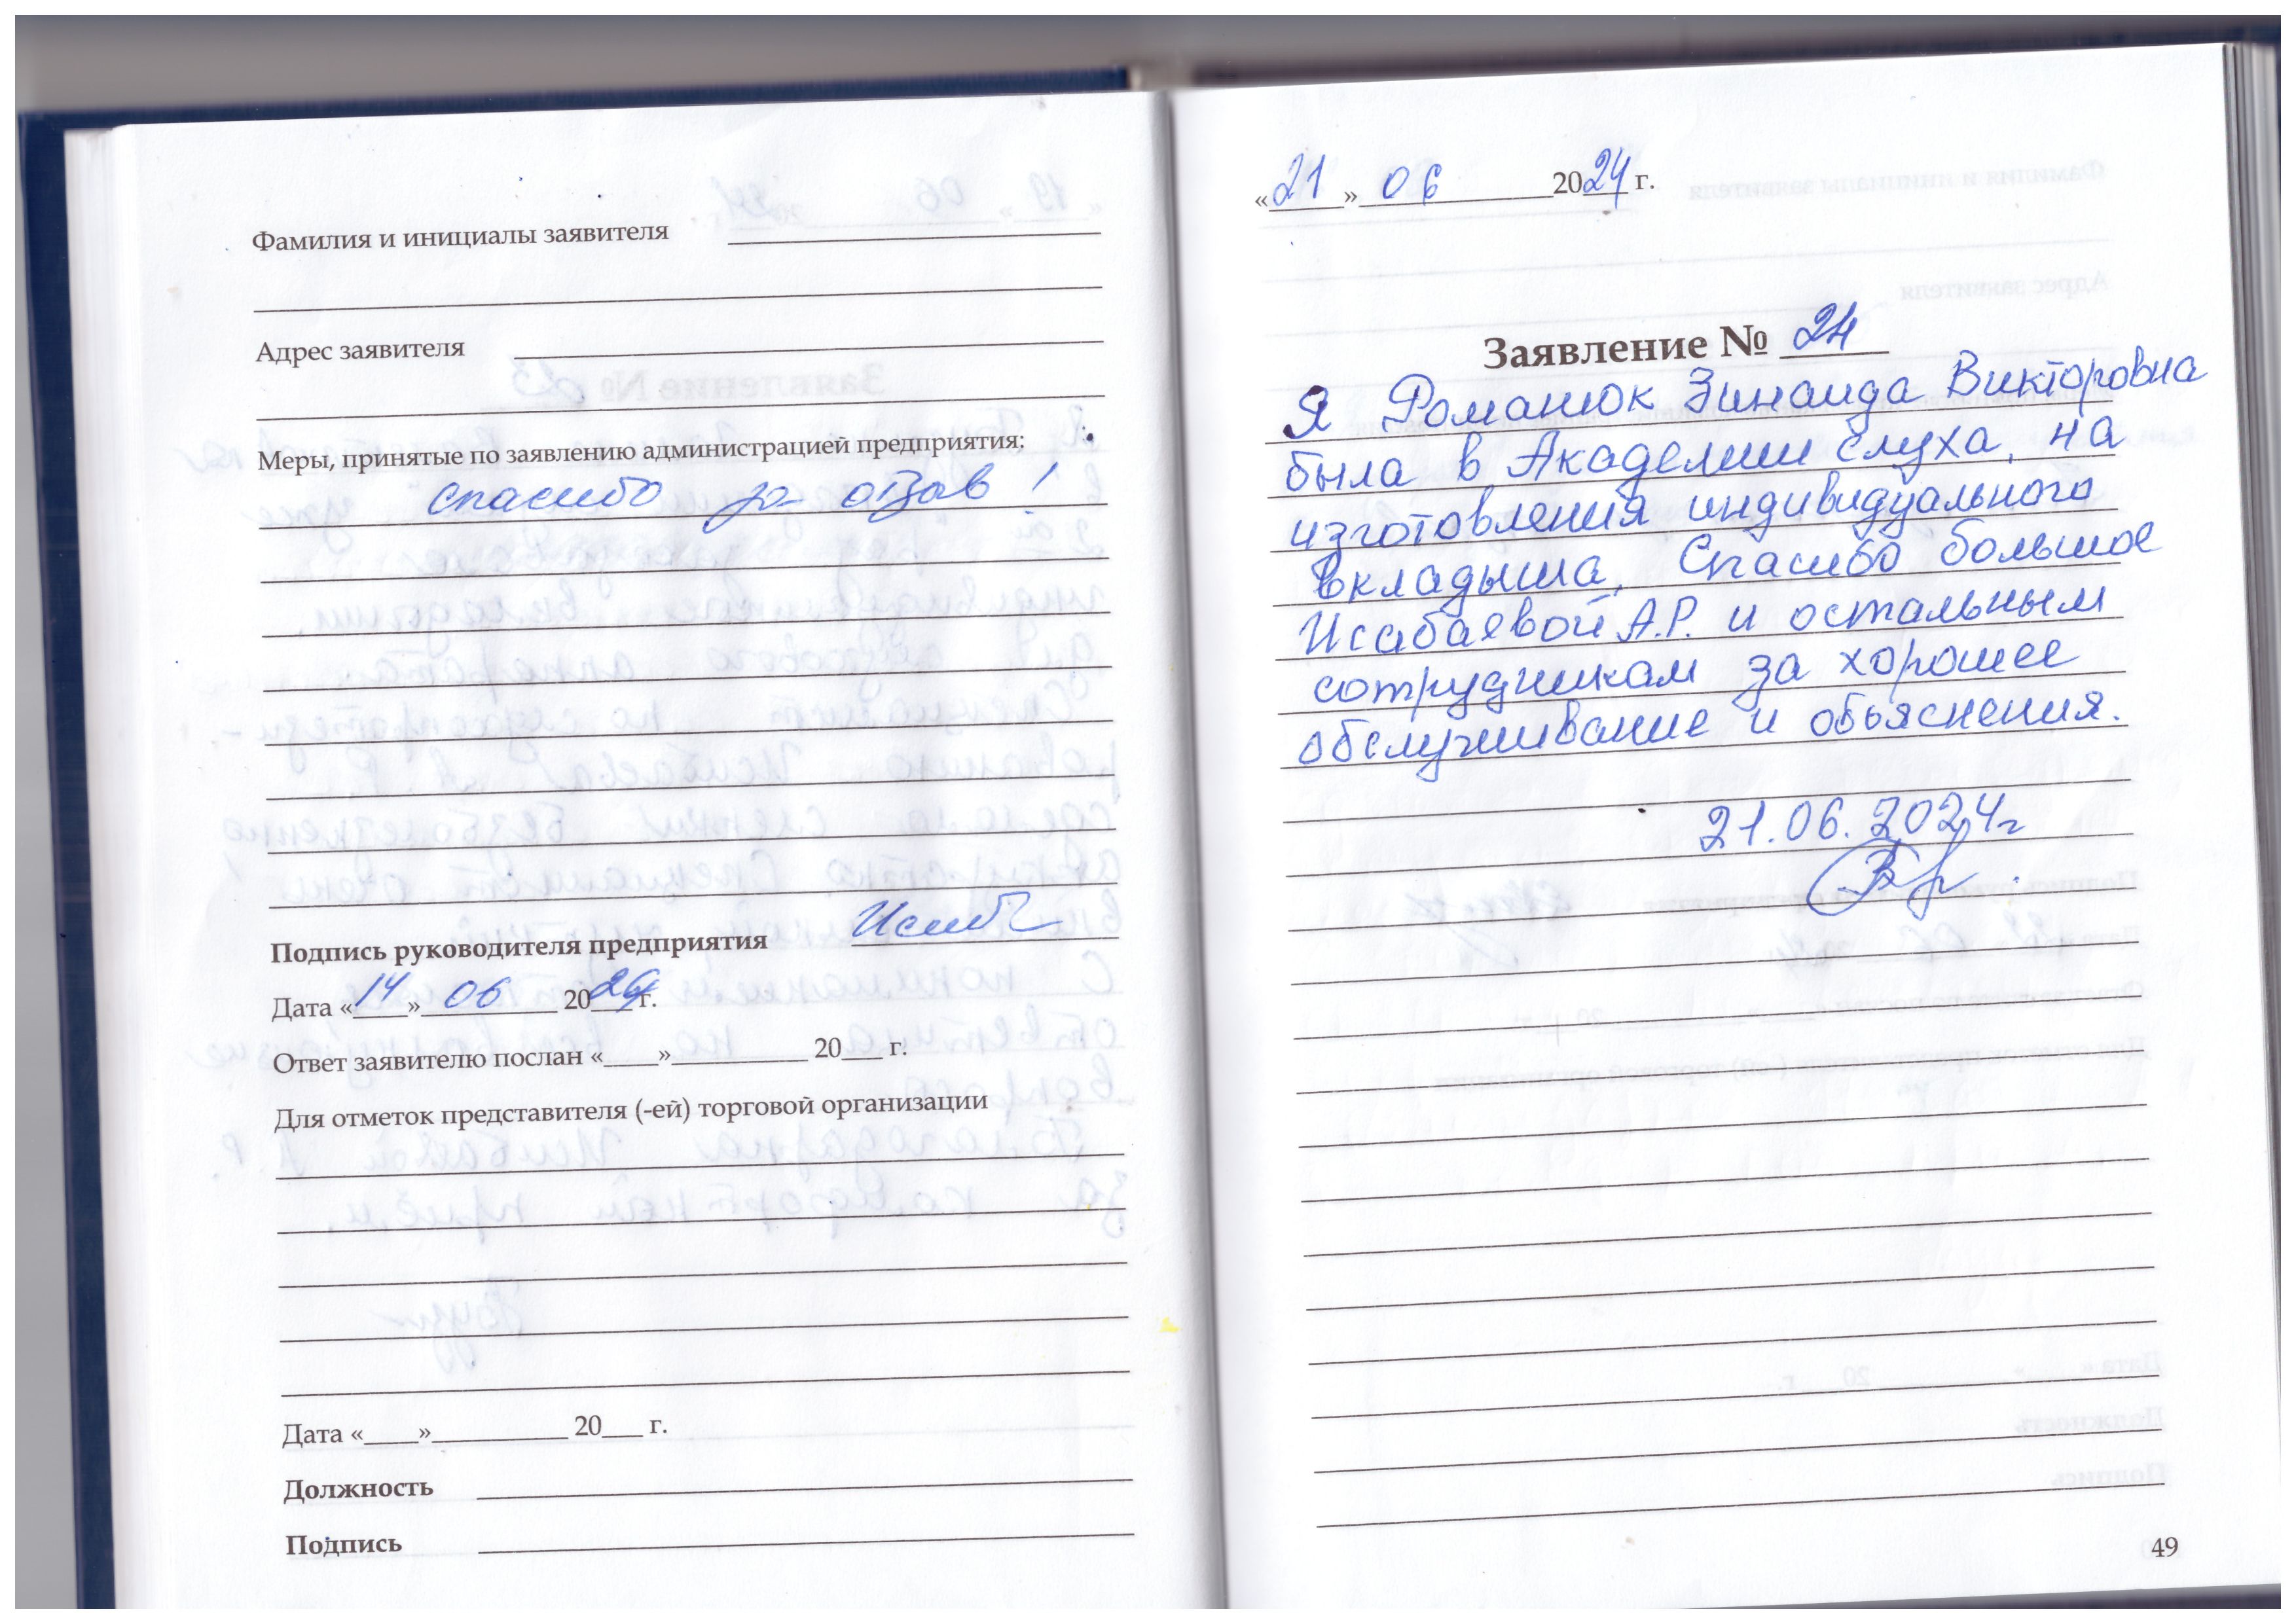 Фамилия и инициалы заявителя
Адрес заявителя
Меры, принятые по заявлению администрацией предприятия:
спасибо за отзыв !
Подпись руководителя предприятия
Дата «14» 06 2024 г.
Ответ заявителю послан «____»__________ 20___ г.
Для отметок представителя (-ей) торговой организации
Дата «____»__________ 20___ г.
Должность
Подпись
«21» 06 2024 г.
Заявление № 24
Я Романюк Зинаида Викторовна
была в Академии слуха, на
изготовления индивидуального
вкладыша, Спасибо большое
Исабаевой А.Р. и остальным
сотрудникам за хорошее
обслуживание и обьяснения.
21.06.2024г
49